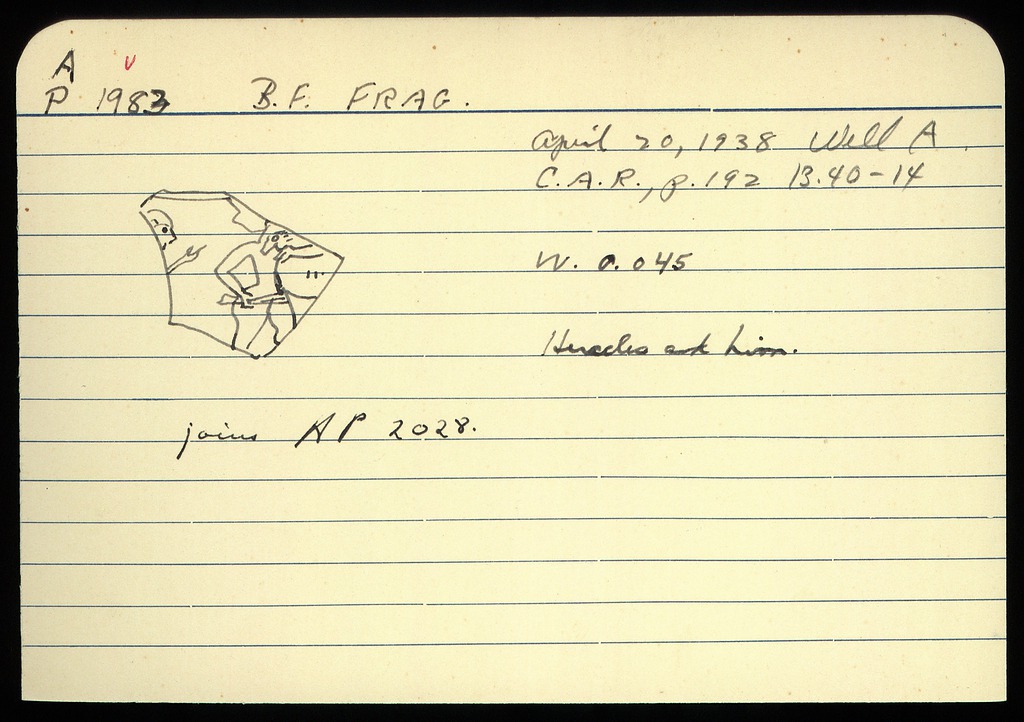 A v
P 1983 B.F. FRAG.
April 20, 1938 Well A
C.A.R., p. 192 13.40-14
W. 0.045
Heracles and lion.
joins AP 2028.